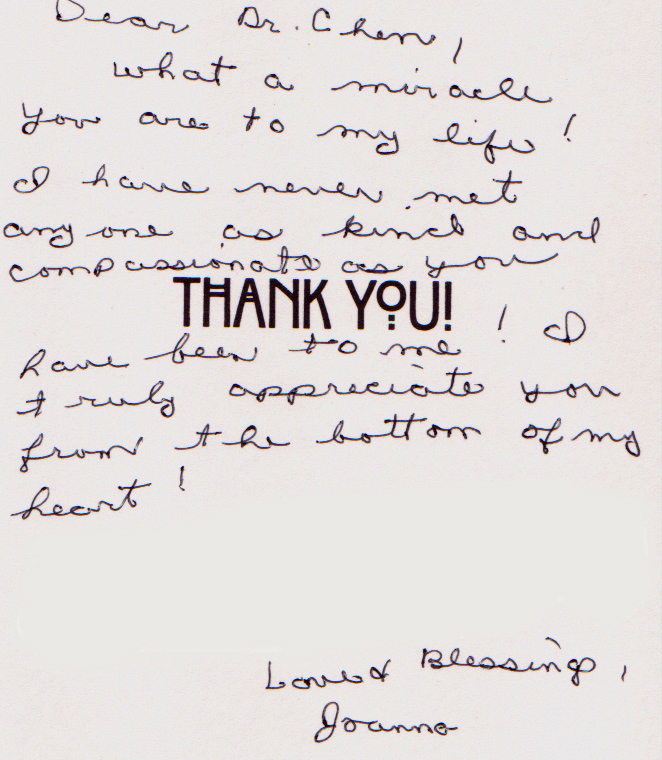 Dear Dr. Chen,
What a miracle
you are to my life!
I have never met
anyone as kind and
compassionate as you
THANK YOU!
have been to me! I
truly appreciate you
from the bottom of my
heart!
Love & Blessings,
Joanna